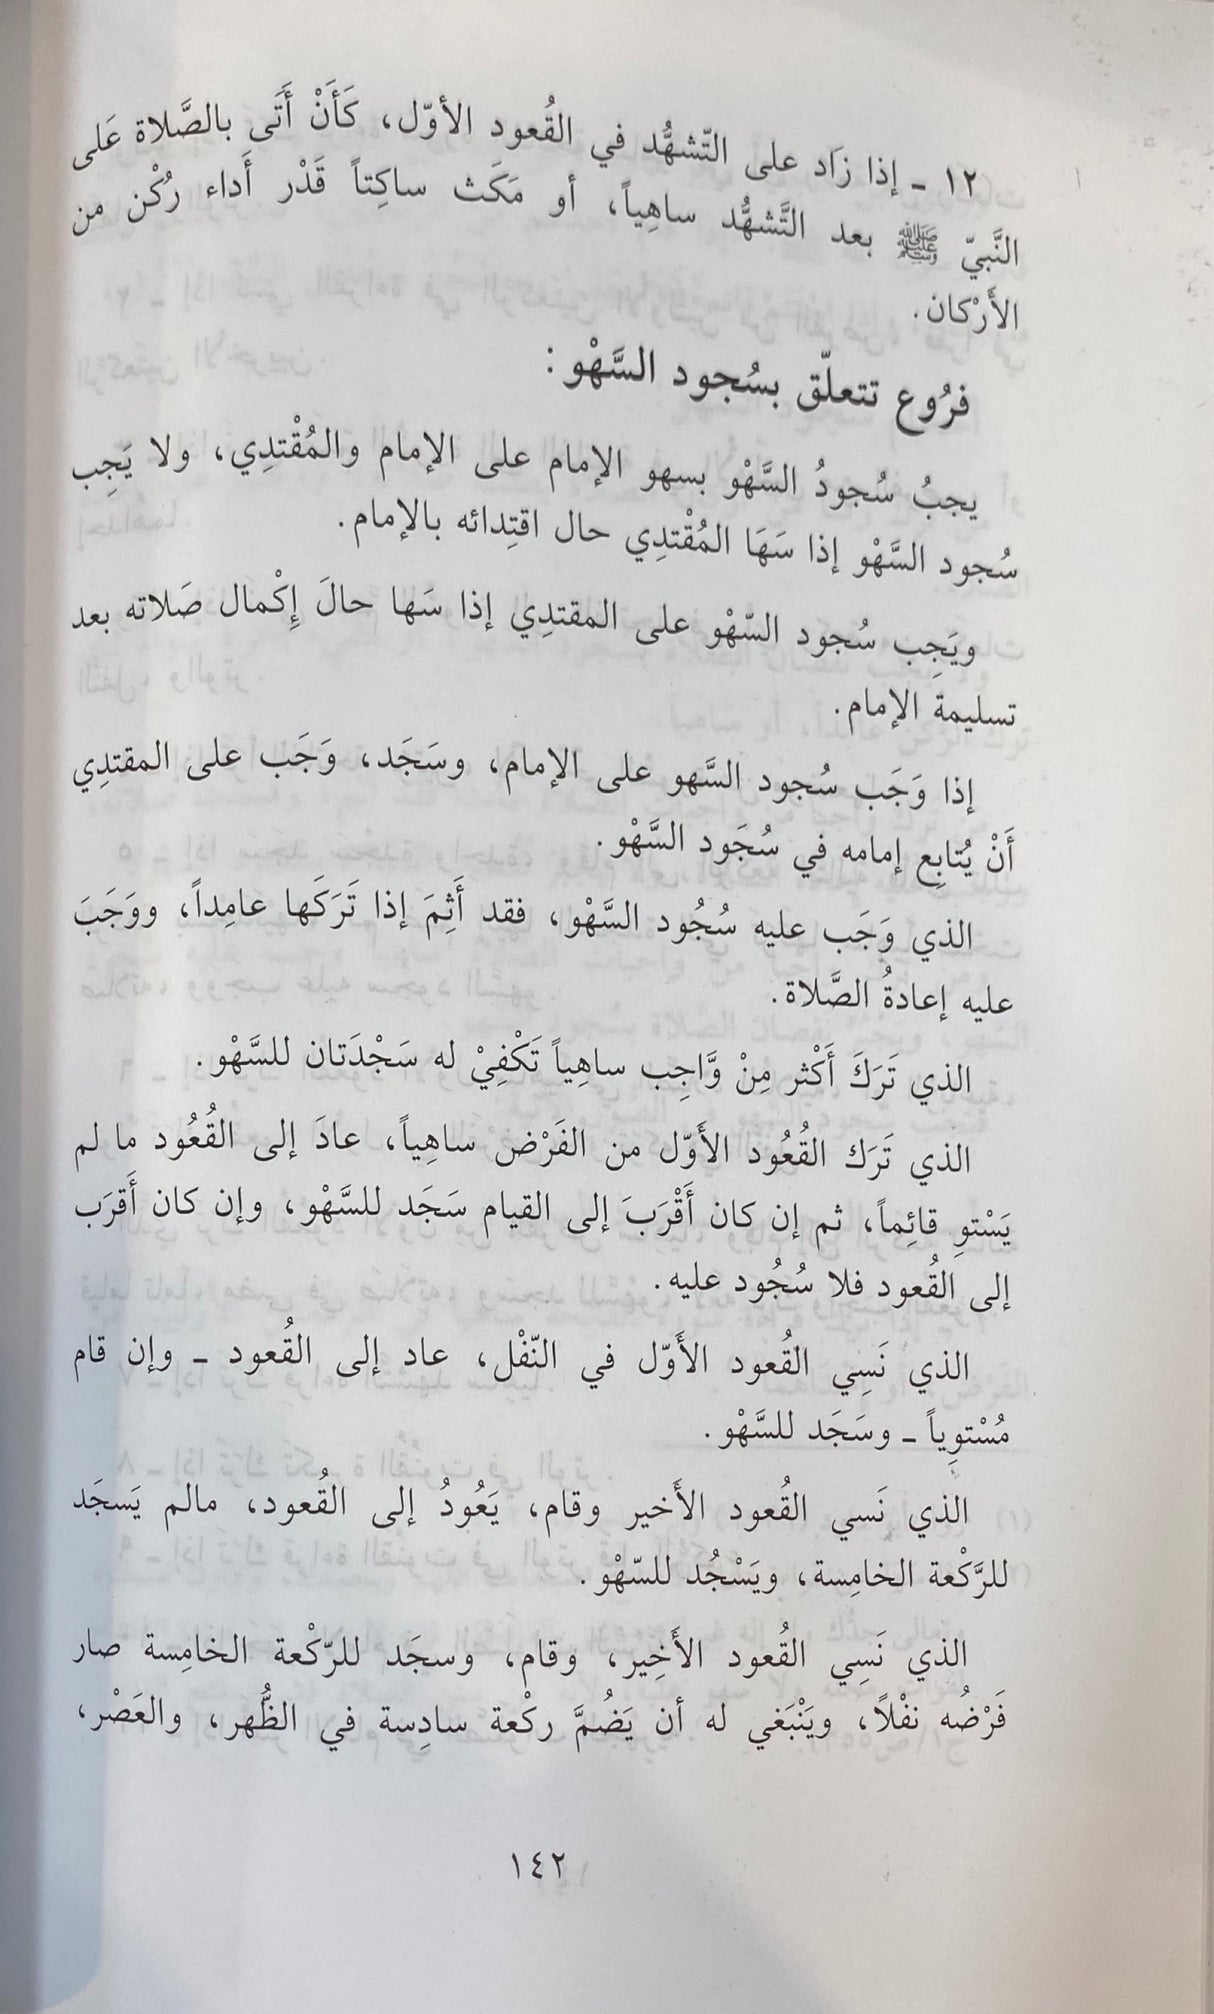 ١٢ ـ إذا زَاد على التّشهُّد في القُعود الأوّل، كَأَنْ أَتَى بالصَّلاة عَلى
النَّبيّ ﷺ بعد التَّشهُّد ساهِياً، أو مَكَث ساكِتاً قَدْر أَداء رُكْن من
الأَرْكان.
فرُوع تتعلّق بسُجود السَّهْو:
يجبُ سُجودُ السَّهْو بسهو الإمام على الإمام والمُقْتدِي، ولا يَجِب
سُجود السَّهْو إذا سَهَا المُقْتدِي حال اقتِدائه بالإمام.
ويَجِب سُجود السّهْو على المقتدِي إذا سَها حالَ إِكْمال صَلاته بعد
تسليمة الإمام.
إذا وَجَب سُجود السَّهو على الإمام، وسَجَد، وَجَب على المقتدِي
أَنْ يُتابِع إمامه في سُجَود السَّهْو.
الذي وَجَب عليه سُجُود السَّهْو، فقد أَثِمَ إذا تَرَكَها عامِداً، ووَجَبَ
عليه إعادةُ الصَّلاة.
الذي تَرَكَ أَكْثر مِنْ وَّاجِب ساهِياً تَكْفِيْ له سَجْدَتان للسَّهْو.
الذي تَرَك القُعُود الأَوّل من الفَرْض ساهِياً، عادَ إلى القُعُود ما لم
يَسْتوِ قائِماً، ثم إن كان أَقْرَبَ إلى القيام سَجَد للسَّهْو، وإن كان أَقرَب
إلى القُعود فلا سُجُود عليه.
الذي نَسِي القُعود الأَوّل في النّفْل، عاد إلى القُعود ـ وإن قام
مُسْتوِياً ـ وسَجَد للسَّهْو.
الذي نَسي القُعود الأَخير وقام، يَعُودُ إلى القُعود، مالم يَسجَد
للرَّكْعة الخامِسة، ويَسْجُد للسّهْو.
الذي نَسِي القُعود الأَخِير، وقام، وسجَد للرّكْعة الخامِسة صار
فَرْضُه نفْلاً، ويَنْبَغي له أن يَضُمَّ ركْعة سادِسة في الظُّهر، والعَصْر،
١٤٢